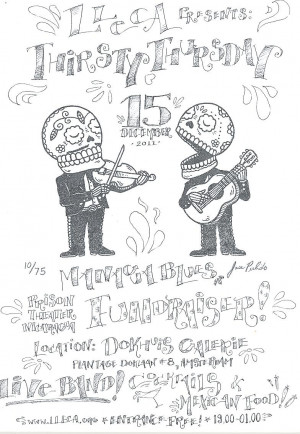 LLeCA PRESENTS:
THIRSTY THURSDAY
15
DECEMBER
2011
10/75
MANAGUA BLUES
PRISON
THEATER
NICARAGUA
FUNDRAISER!
LOCATION: DOKHUIS GALERIE
PLANTAGE DOKLAAN 8, AMSTERDAM
LIVE BAND! COCKTAILS &
MEXICAN FOOD!
WWW.LLECA.ORG * ENTRANCE-FREE! * 19.00-01.00!